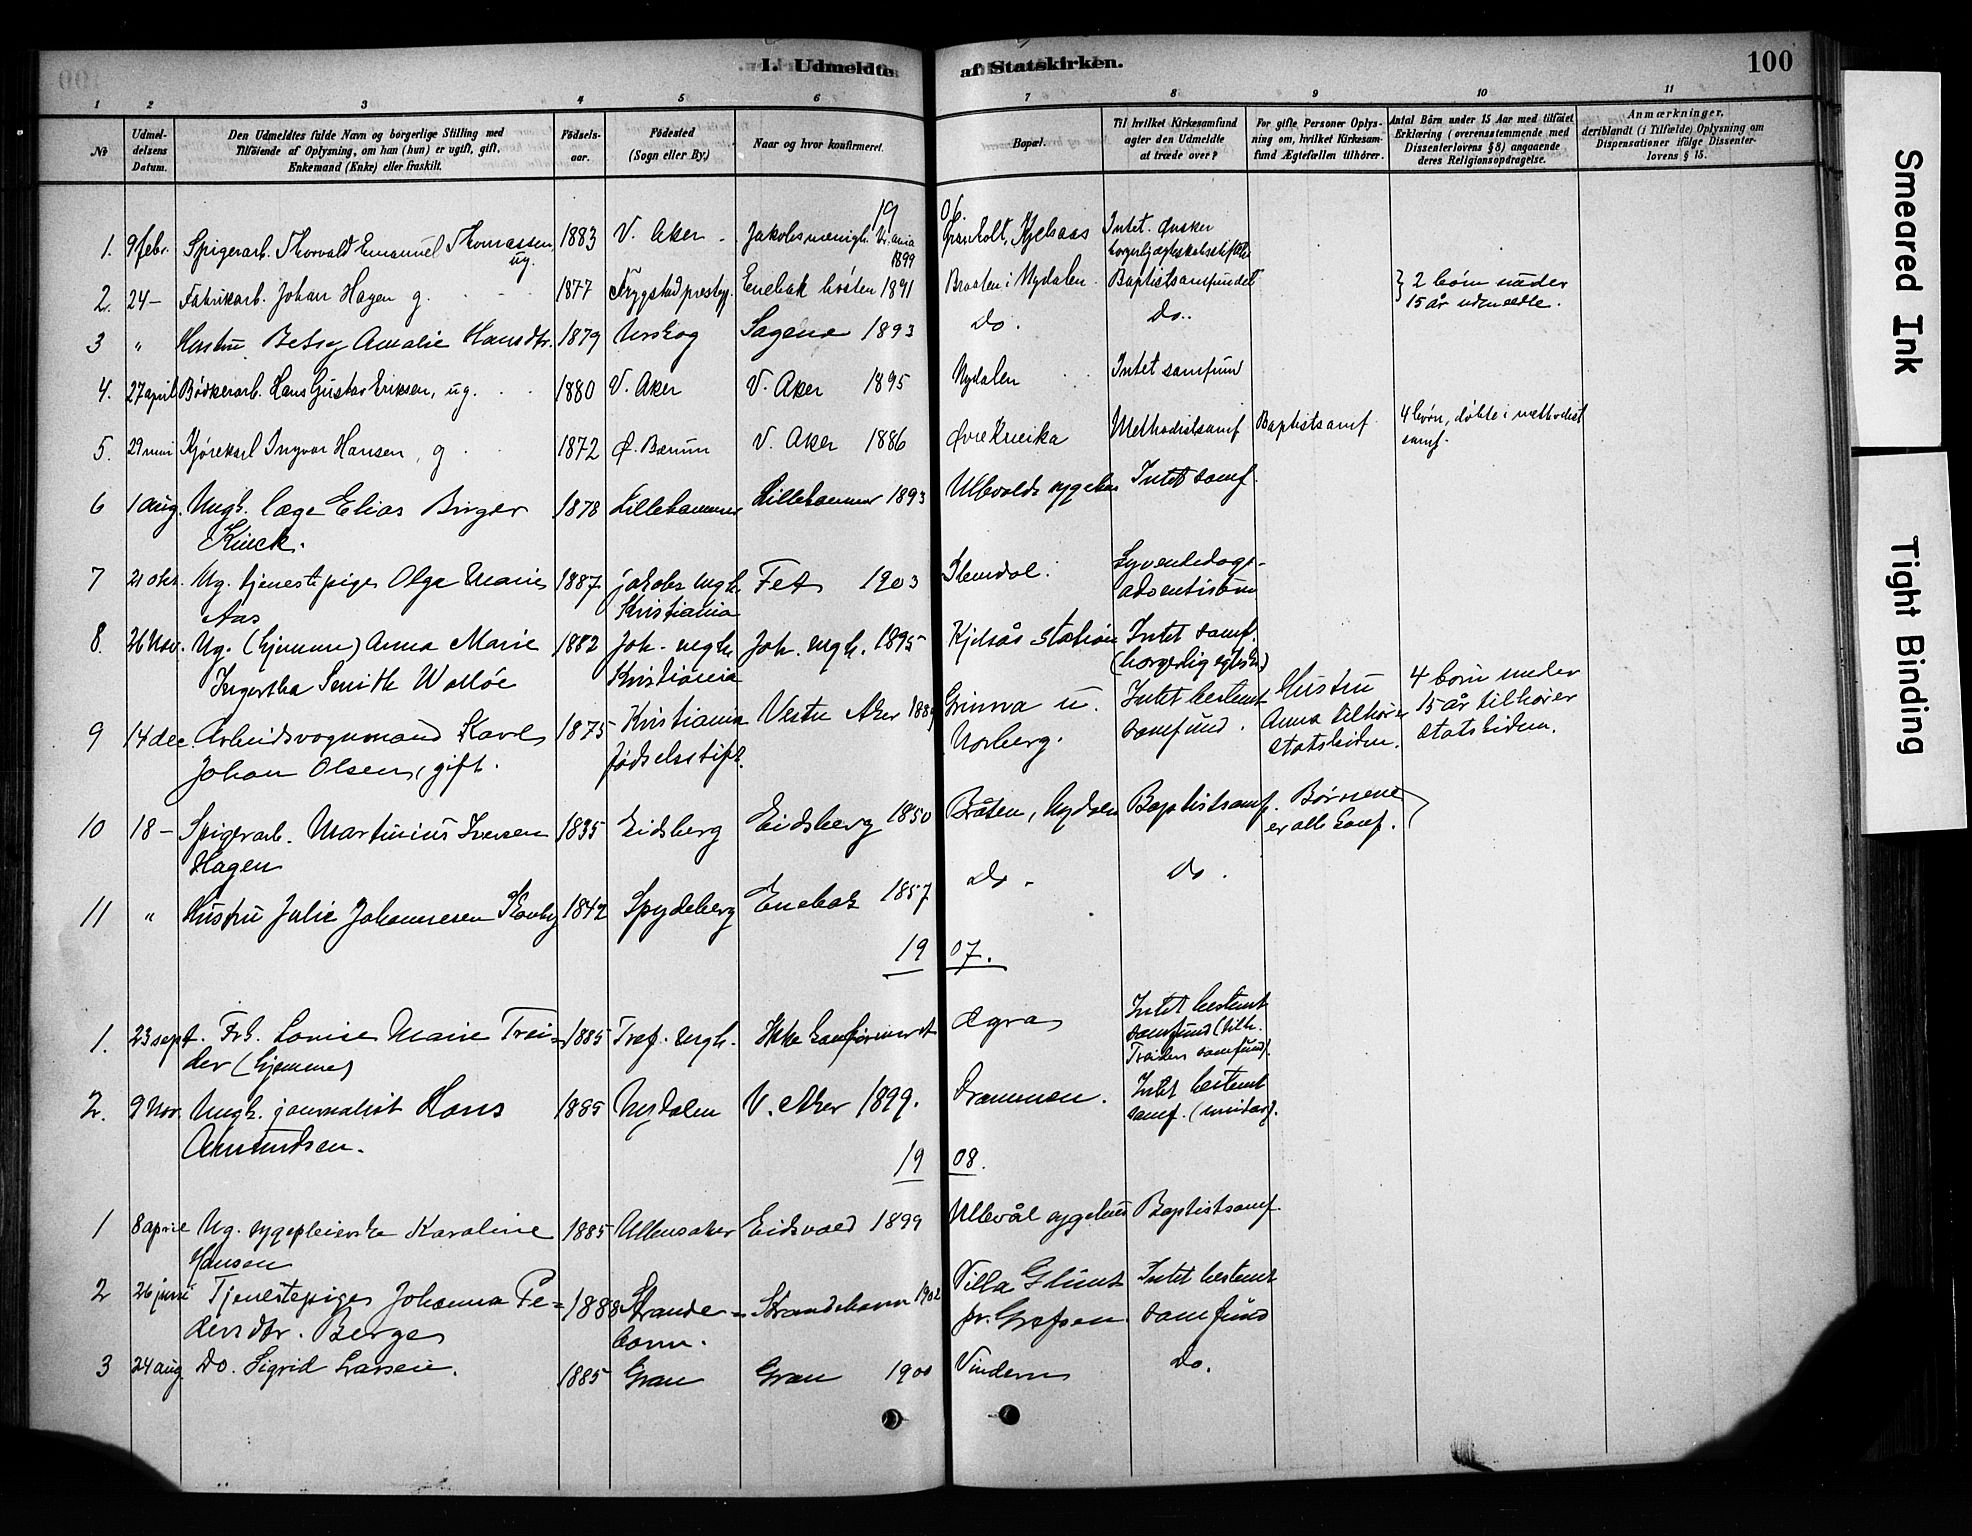 I. Udmeldte af Statskirken.
100
1 2 3 4 5 6 7 8 9 10 11
No
Udmeldelsens Datum.
Den Udmeldtes fulde Navn og borgerlige Stilling med
Tilføiende af Oplysning, om han (hun) er ugift, gift,
Enkemand (Enke) eller fraskilt.
Fødselsaar.
Fødested
(Sogn eller By.)
Naar og hvor konfirmeret.
Bopæl.
Til hvilket Kirkesamfund
agter den Udmeldte
at træde over?
For gifte Personer Oplysning om, hvilket Kirkesamfund Ægtefællen tilhører.
Antal Børn under 15 Aar med tilføiet
Erklæring (overensstemmende med
Dissenterlovens § 8) angaaende
deres Religionsopdragelse.
Anmærkninger,
deriblandt (i Tilfælde) Oplysning om
Dispensationer ifølge Dissenterlovens § 15.
19 06.
1. 9 febr. Spigerarb. Thorvald Emanuel Thomassen, ug. 1883 V. Aker. Jakobs menigh. Kr.ania 1899 Kjelsaas Intet. Ønsker
2. 24 - Fabrikarb. Johan Hagen g. 1877 Enebak høsten 1891 Braaten i Nydalen. Baptistsamfundet } 2 børn under
15 år udmeldte.
3 " Hustru Betsy Amalie Hansdtr. 1879 Urskog Sagene 1893 do. do.
4. 27 april Bødkerarb. Hans Gustav Eriksen, ug. 1880 V. Aker V. Aker 1895 Nydalen Intet samfund
5. 29 Kjørekarl Ingvar Hansen, g 1872 Ø. Bærum V. Aker 1886 Øvre Methodistsamf Baptistsamf 4 børn, døbte i methodist
samf.
6 1 aug. Ungk. læge Elias Birger 1878 Lillehammer Lillehammer 1893 Ullevolds sygehus Intet samf.
Kinck.
7 21 okt. Ug. tjenestepige Olga Marie 1887 Jakobs mgh. Fet 1903 Slemdal. Syvendedags-
Aas Kristiania adventistsam
8. 26 Nov. Ug. (hjemme) Anna Marie 1882 Joh. mgh. Joh. mgh. 1895 Kjelsås station Intet samf.
Ingertha Smith Walløe Kristiania (borgerlig egtsk.)
9 14 dec. Arbeidsvognmand Karl 1875 Kristiania Vestre Aker Grinna u. Intet bestemt Hustru 4 børn under
Johan Olsen, gift. fødselsstift. Norberg. samfund. Anna tilhører 15 år tilhører
statskirken. statskirken.
10 18 - Spigerarb. Martinius Iversen 1835 Eidsberg Eidsberg 1850 Bråten, Nydalen Baptistsamf. Børnene
Hagen er alle konf.
11 " Hustru Julie Johannesen 1842 Spydeberg Enebak 1857 do. do.
19 07.
1. 23 sept. Frk. Louise Marie Trei- 1885 Tref. mgh. Ikke konfirmeret Ægra Intet bestemt
der (hjemme) samfund (tilh.
Treiders samfund).
2. 9 Nov. Ungk. journalist Hans 1885 Nydalen V. Aker 1899. Drammen. Intet bestemt
Amundsen. samf. (unitar).
19 08.
1 8 april Ug. sygepleierske Karoline 1885 Ullensaker Eidsvold 1899 Ullevål sygehus Baptistsamf.
Hansen
2 26 juni Tjenestepige Johanna Pe- 1888 Strande- Strandebarm 1902 Villa Glimt Intet bestemt
dersdtr. Berge barm. pr. Grefsen samfund
3 24 aug. Do. Sigrid Larsen. 1885 Gran Gran 1900 Vindern do.
Smeared Ink
Tight Binding